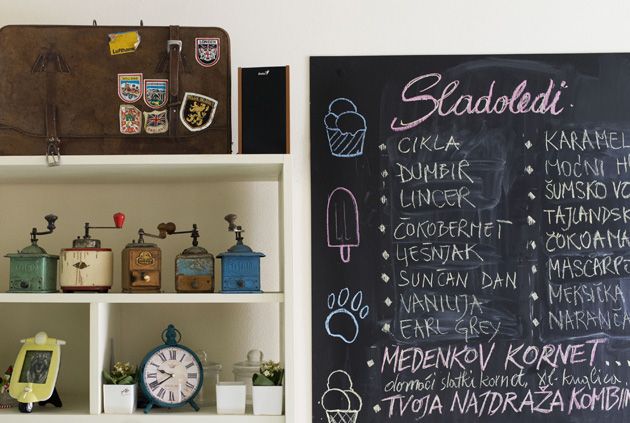 Lufthansa
LONDON
Genius
Sladoledi
CIKLA
ĐUMBIR
LINCER
ČOKOBERNET
LJEŠNJAK
SUNČAN DAN
VANILIJA
EARL GREY
KARAMEL
MOĆNI
ŠUMSKO VO
TAJLANDSK
ČOKOAMA
MASCARP
MEKSIČKA
NARANČA
MEDENKOV KORNET...
domaći slatki kornet, xl-kuglica,
TVOJA NAJDRAŽA KOMBIN